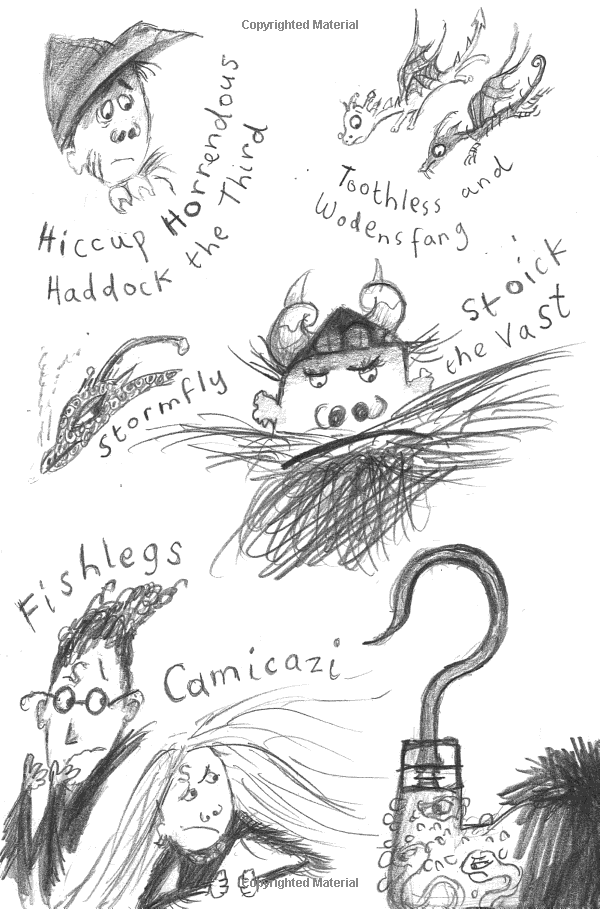 Copyrighted Material
Hiccup Horrendous
Haddock the Third
Toothless and
Wodensfang
Stoick
the Vast
Stormfly
Fishlegs
Camicazi
Copyrighted Material